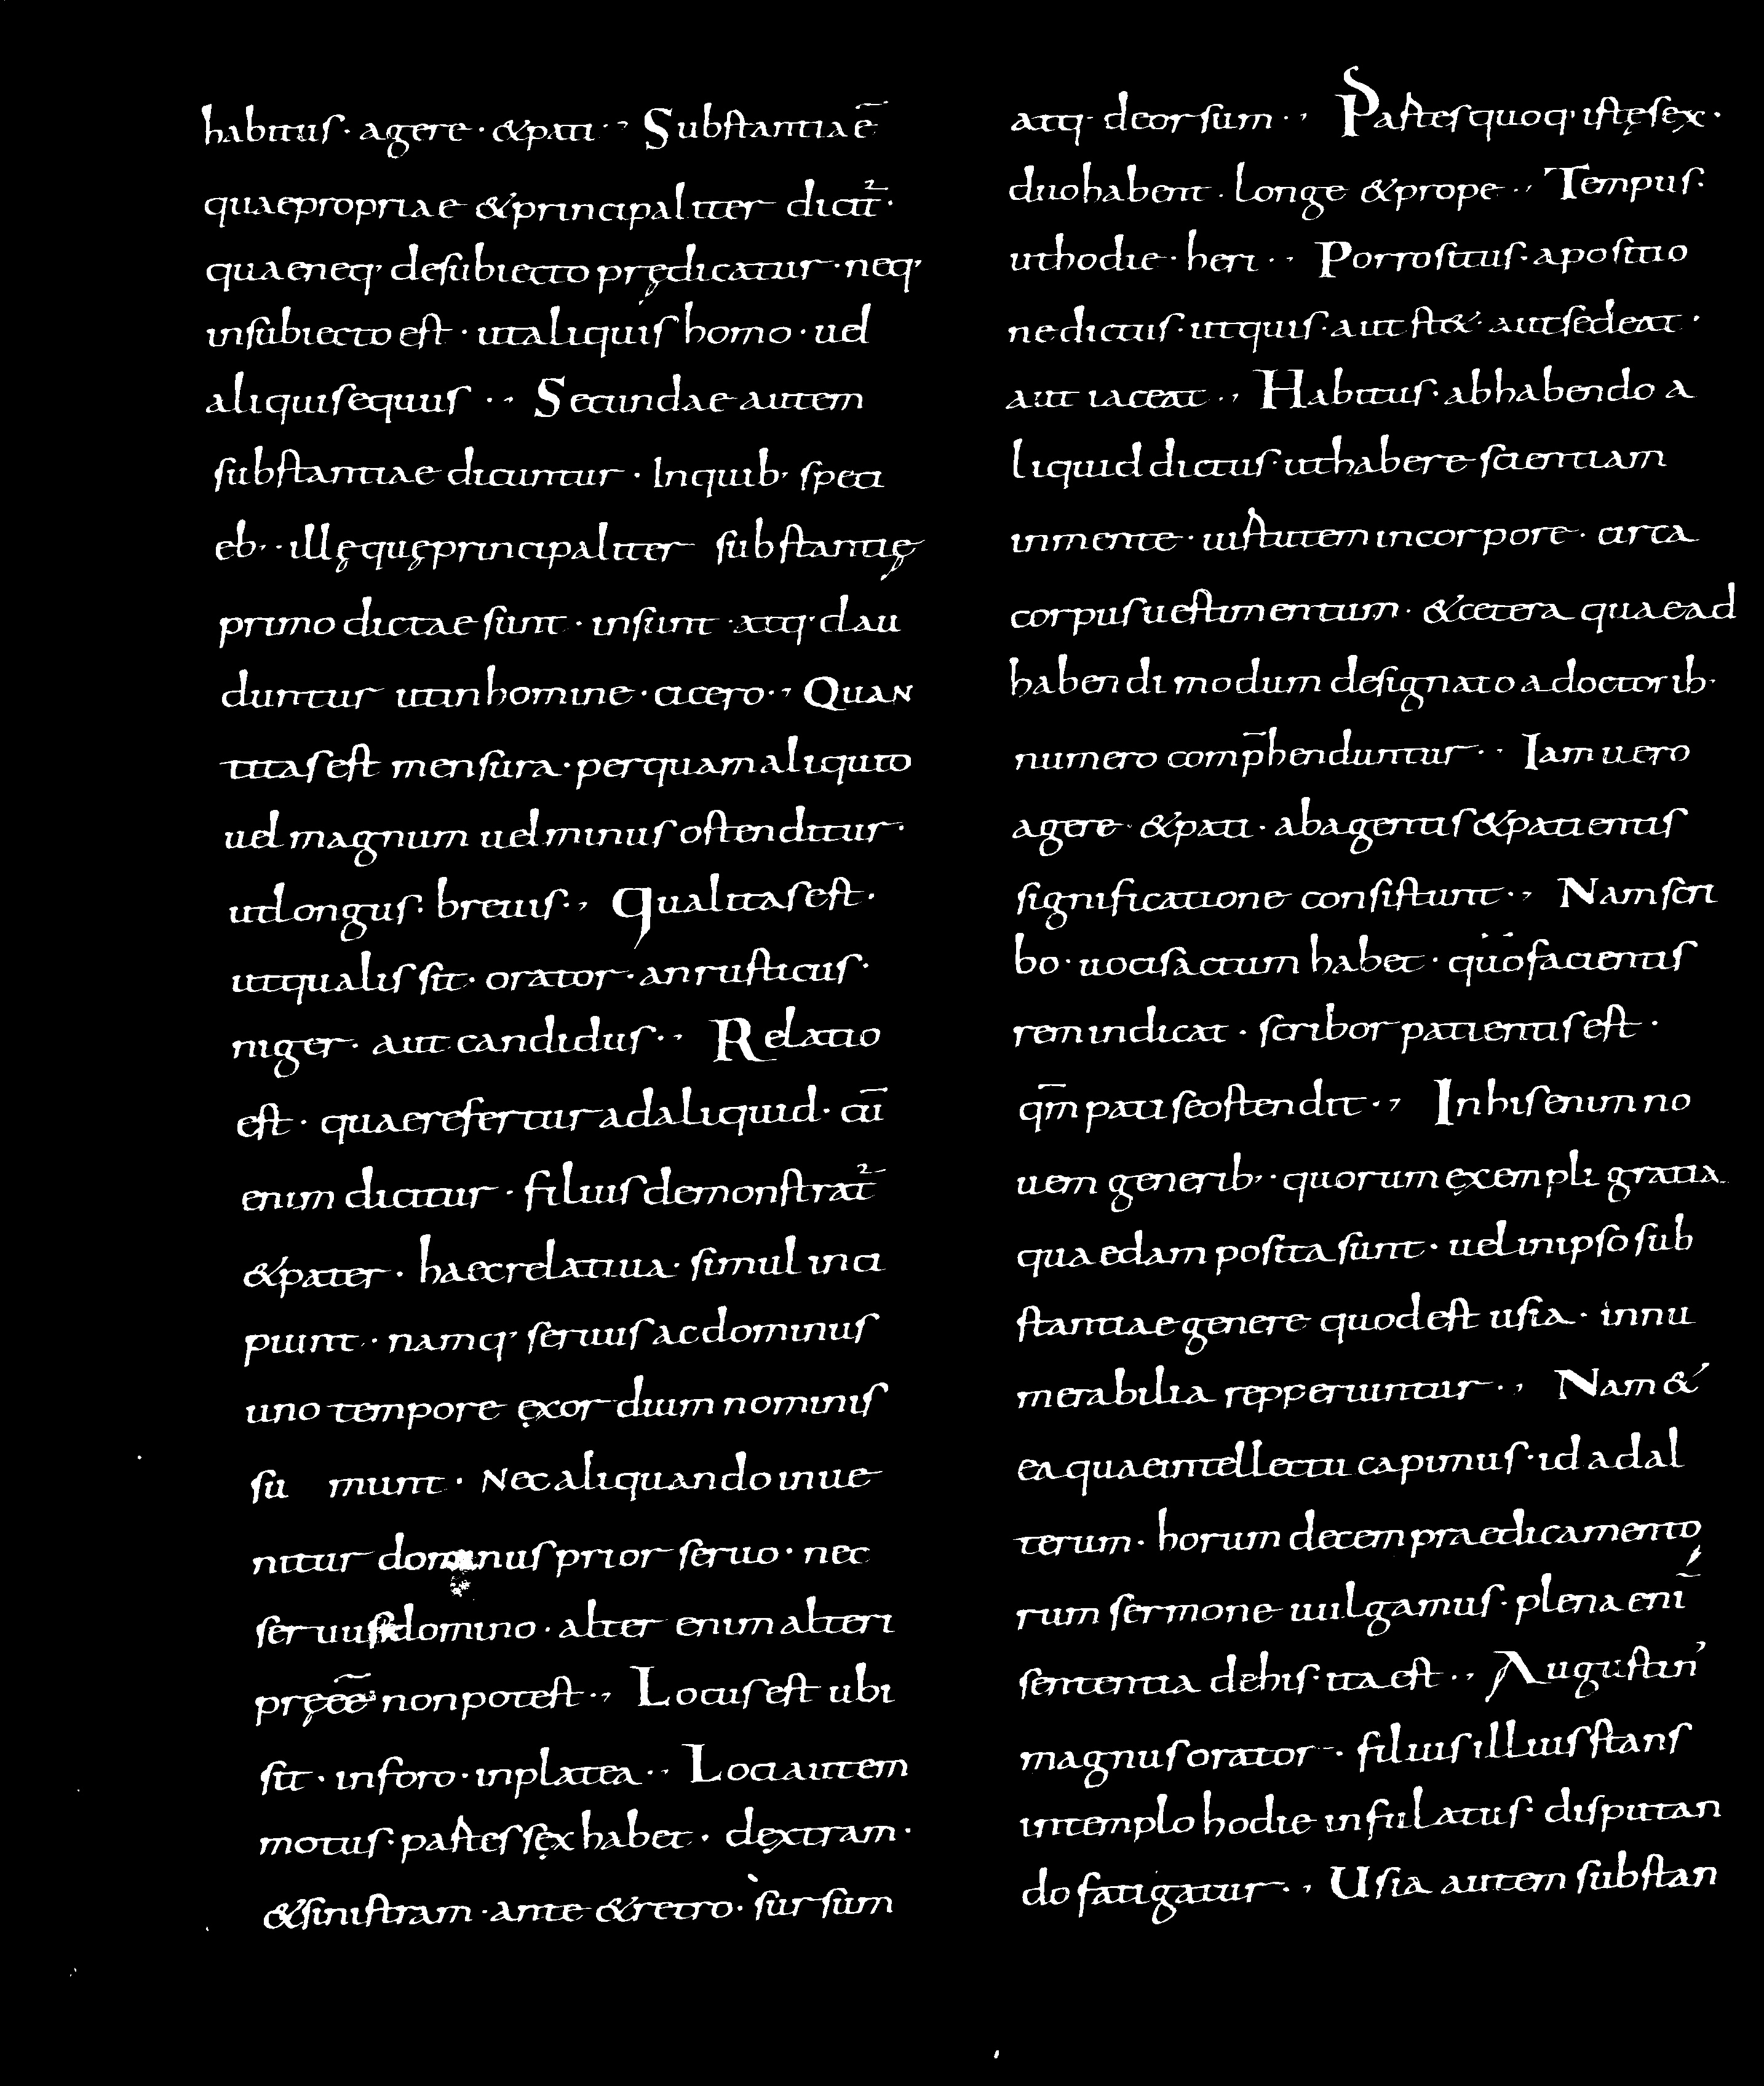 habitus· agere· &pati ·, Substantia ē
quae propriae & principaliter dicit᷑·
quae neq; de subiecto prędicatur · neq;
in subiecto est · ut aliquis homo · uel
aliquis equus ·, Secundae autem
substantiae dicuntur · In quib; speci
eb; · illę quę principaliter substantię
primo dictae sunt · insunt · atq; clau
duntur ut in homine · cicero ·, Quan
titas est mensura · per quam aliquto
uel magnum uel minus ostenditur·
ut longus· breuis ·, Qualitas est·
ut qualis sit· orator · an rusticus·
niger · aut candidus ·, Relatio
est · quae refertur ad aliquid · cū
enim dicitur · filius demonstrat᷑
& pater · haec relatiua · simul inci
piunt · namq; seruus ac dominus
uno tempore ęxordium nominis
su munt · Nec aliquando inue
nitur dominus prior seruo · nec
seruus domino · alter enim alteri
pręēē non potest ·, Locus est ubi
sit · in foro · in platea ·, Loci autem
motus · partes sęx habet · dęxtram ·
& sinistram · ante & retro · sursum
atq; deorsum ·, Partes quoq; istę sęx ·
duo habent · longe & prope ·, Tempus·
ut hodie · heri ·, Porro situs · a positio
ne dictus · ut quis · aut st& · aut sedeat ·
aut iaceat ·, Habitus · ab habendo a
liquid dictus · ut habere scientiam
in mente · uirtutem in corpore · circa
corpus uestimentum · & cetera quae ad
habendi modum designato a doctorib·
numero comp̄henduntur ·, Iam uero
agere · & pati · ab agentis & patientis
significatione consistunt ·, Nam scri
bo · uocis actum habet · quo facientis
rem indicat · scribor patientis est ·
qm̄ pati se ostendit ·, In his enim no
uem generib; · quorum ęxempli gratia
quaedam posita sunt · uel in ipso sub
stantiae genere quod est usia · innu
merabilia repperiuntur ·, Nam &
ea quae intellectu capimus · id ad al
terum · horum decem praedicamento
rum sermone uulgamus · plena enī
sententia de his · ita est ·, Augustin'
magnus orator · filius illius stans
in templo hodie infulatus · disputan
do fatigatur ·, Usia autem substan